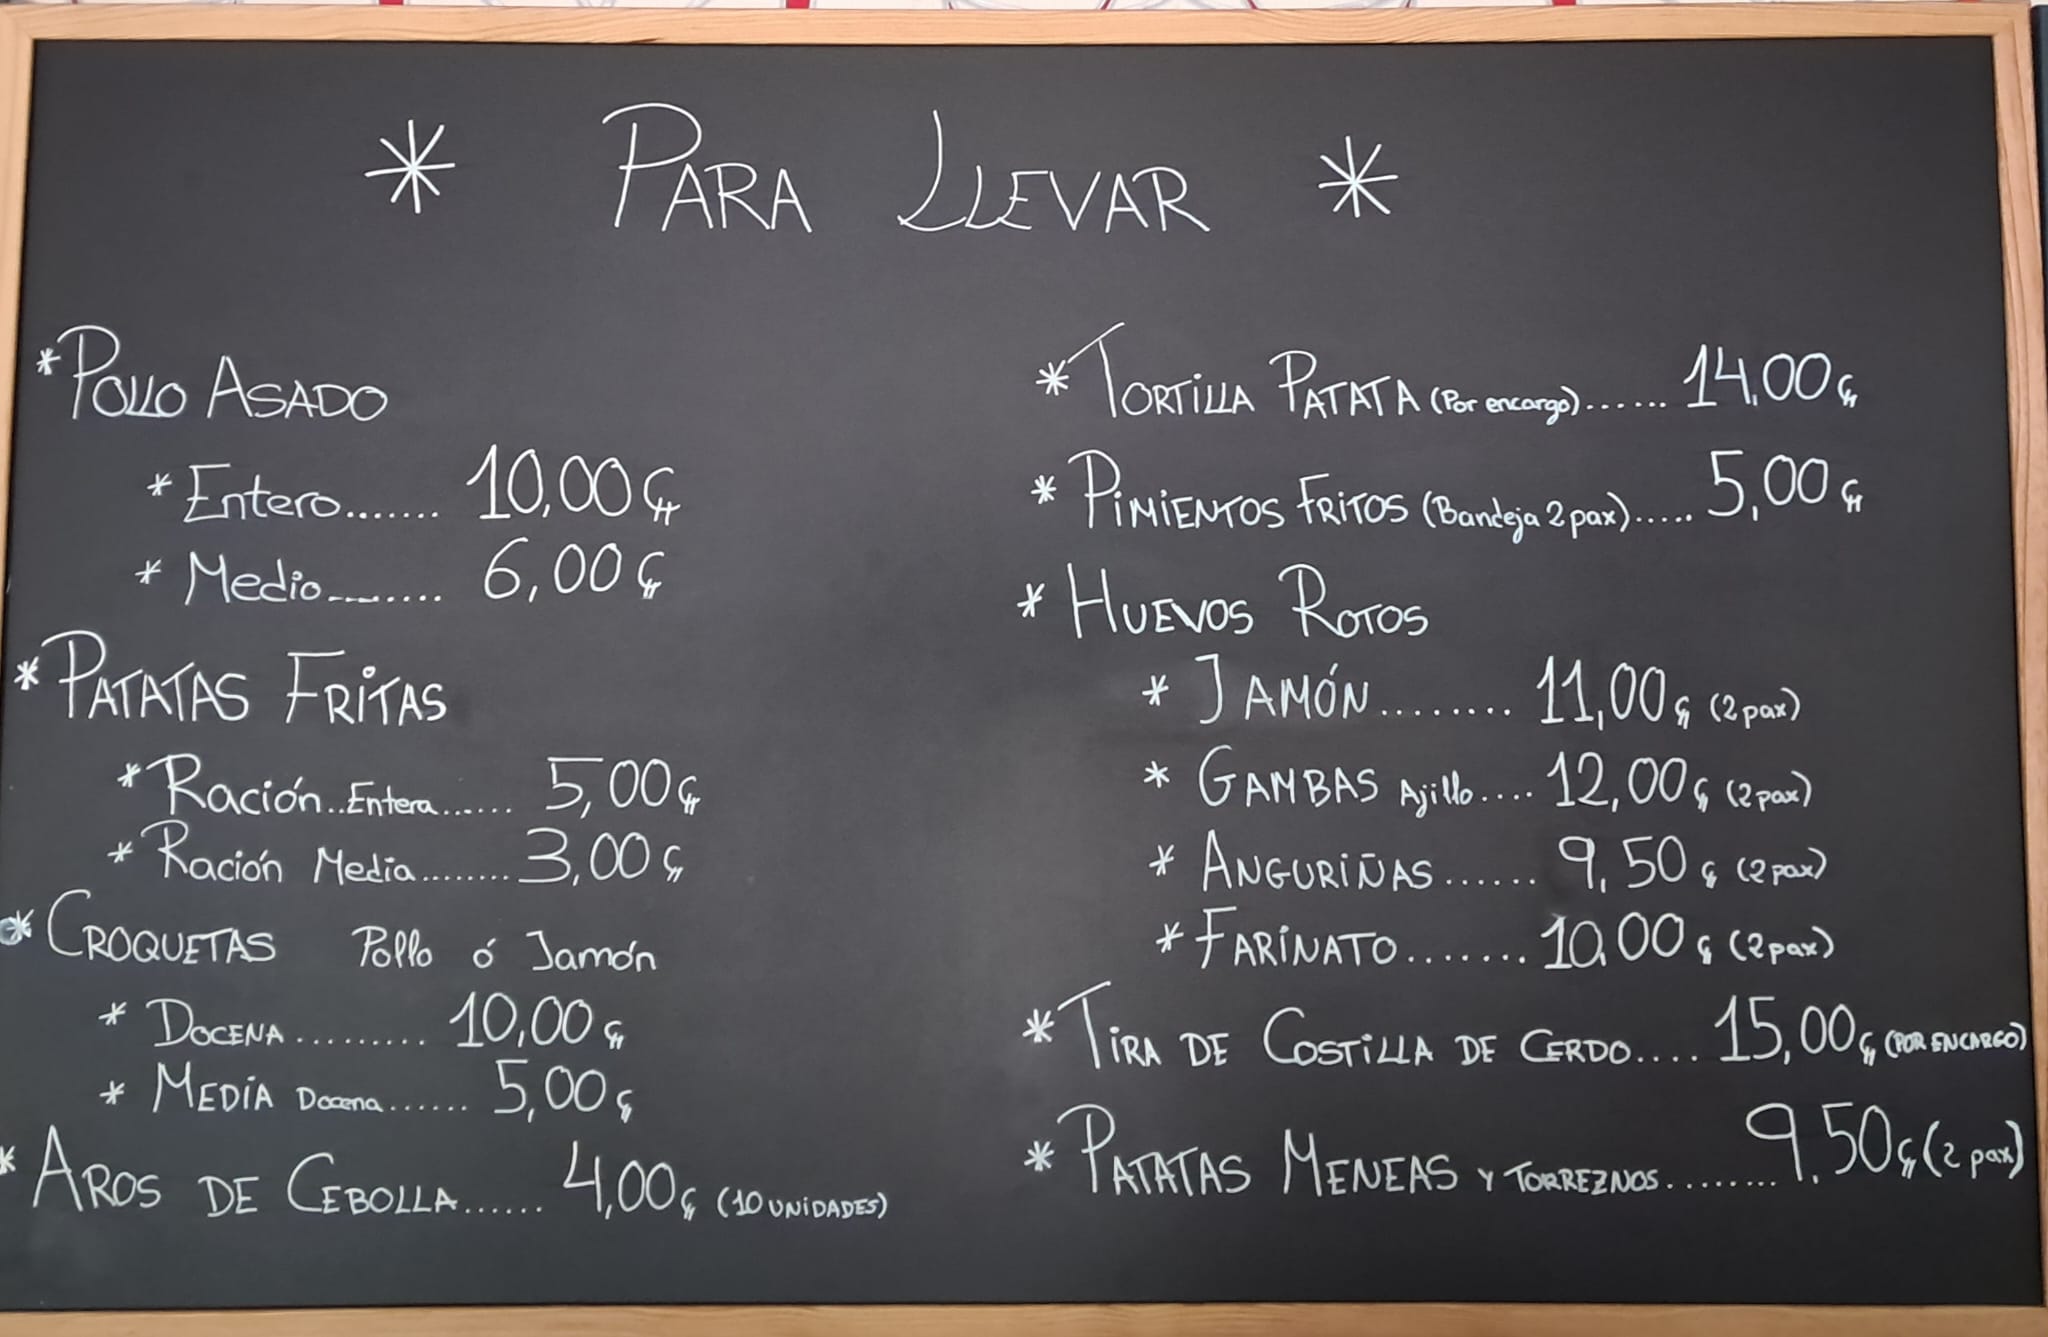 * PARA LLEVAR *
* POLLO ASADO
* Entero....... 10,00 €
* Medio........ 6,00 €
* PATATAS FRITAS
* Ración..Entera...... 5,00 €
* Ración Media........ 3,00 €
* CROQUETAS Pollo ó Jamón
* DOCENA......... 10,00 €
* MEDIA Docena...... 5,00 €
* AROS DE CEBOLLA...... 4,00 € (10 UNIDADES)
* TORTILLA PATATA (Por encargo)...... 14,00 €
* PIMIENTOS FRITOS (Bandeja 2 pax)..... 5,00 €
* HUEVOS ROTOS
* JAMÓN........ 11,00 € (2 pax)
* GAMBAS Ajillo.... 12,00 € (2 pax)
* ANGURIÑAS...... 9,50 € (2 pax)
* FARINATO....... 10,00 € (2 pax)
* TIRA DE COSTILLA DE CERDO.... 15,00 € (POR ENCARGO)
* PATATAS MENEAS Y TORREZNOS........ 9,50 € (2 pax)